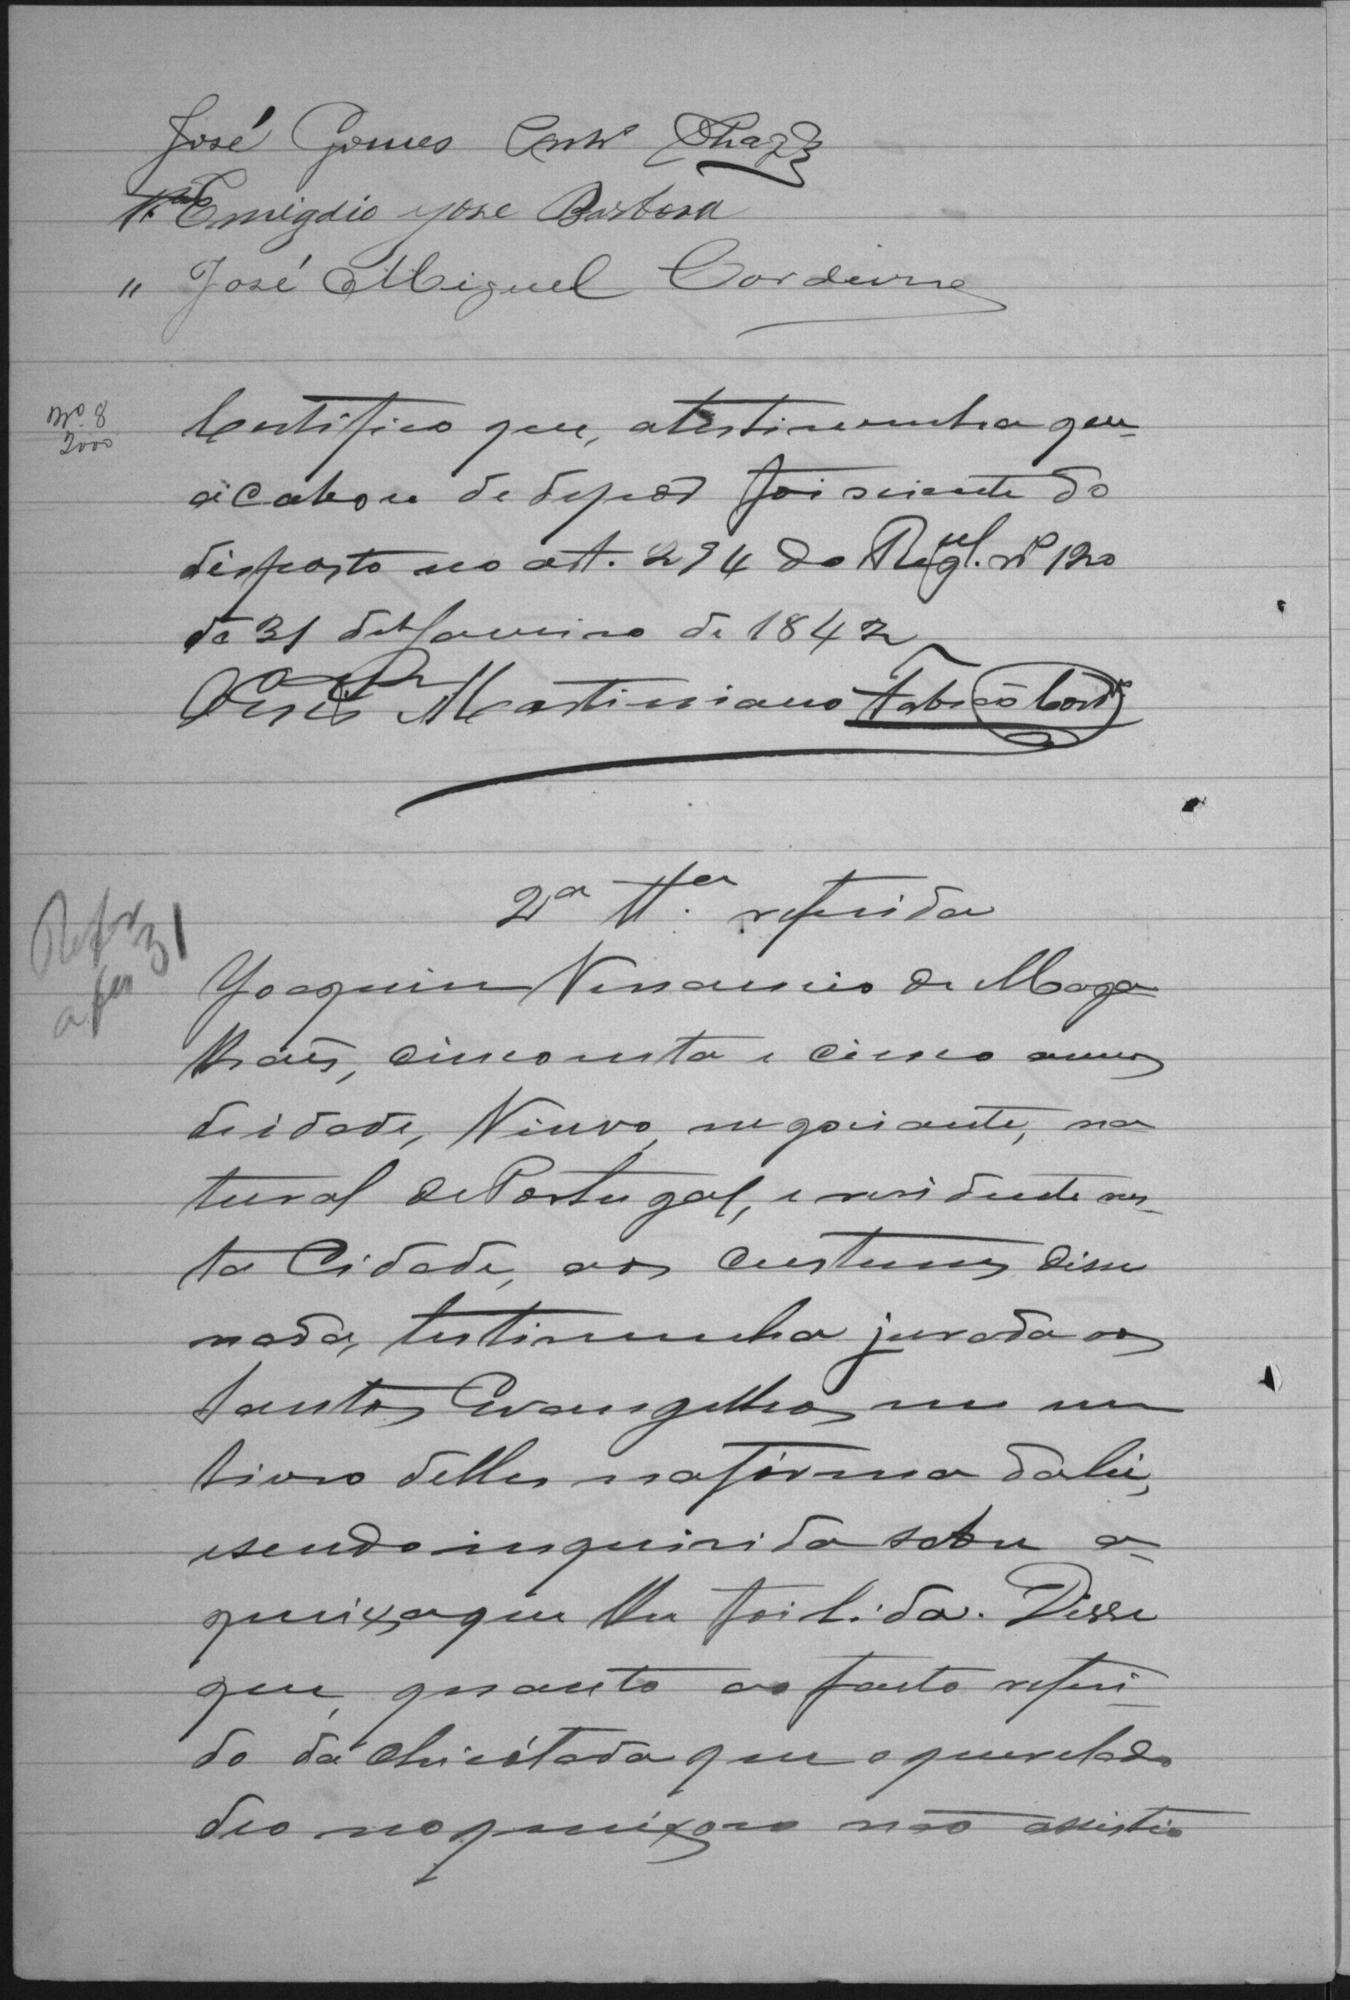 José Gomes
Emigdio Jose Barbosa
" José Miguel Cordeiro
Nº. 8
2000
Certifico que, atestimunha que
acabou de depôr foi sciente do
disposto no art. 294 do Regul. nº 120
de 31 de Janeiro de 1842
Martiniano
2ª tt.ª referida
Refr
a fls 31
Joaquim Venancio de Maga
lhaẽs, cincoenta e cinco annos
de idade, Viuvo, negociante, na
tural de Portugal, e residente nes-
ta Cidade, aos custumes disse
nada, testimunha jurada aos
Santos Evangelhos em um
livro delles na fórma da lei,
e sendo inquirida sobre a
queixa que lhe foi lida. Disse
que, quanto ao facto referi-
do da chicótada que o querelado
deo no queixoso não assistio